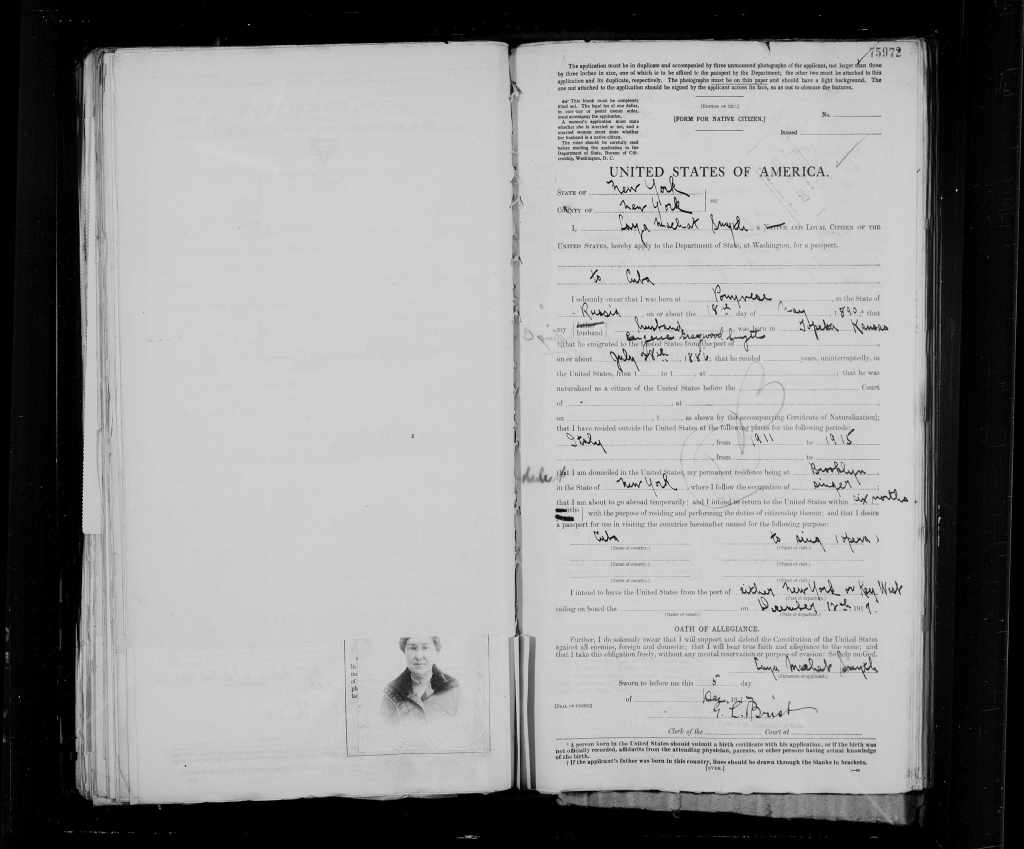 75972
The application must be in duplicate and accompanied by three unmounted photographs of the applicant, not larger than three
by three inches in size, one of which is to be affixed to the passport by the Department; the other two must be attached to this
application and its duplicate, respectively. The photographs must be on thin paper and should have a light background. The
one not attached to the application should be signed by the applicant across its face, so as not to obscure the features.
This blank must be completely
filled out. The legal fee of one dollar,
in currency or postal money order,
must accompany the application.
A woman's application must state
whether she is married or not, and a
married woman must state whether
her husband is a native citizen.
The rules should be carefully read
before mailing the application to the
Department of State, Bureau of Citi-
zenship, Washington, D. C.
[FORM FOR NATIVE CITIZEN.]
No.
Issued
UNITED STATES OF AMERICA.
STATE OF New York
COUNTY OF New York
ss:
I, Machat Smyth, a AND LOYAL CITIZEN OF THE
UNITED STATES, hereby apply to the Department of State, at Washington, for a passport.
to Cuba
I solemnly swear that I was born at , in the State of
Russia, on or about the 18th day of May, 1890, that
my husband husband was born in Topeka Kansas
Eugene Smyth
that he emigrated to the United States from the port of
on or about July 28th, 1886, that he resided years, uninterruptedly, in
the United States, from 1 to 1 , at ; that he was
naturalized as a citizen of the United States before the Court
of , at
on , 1 , as shown by the accompanying Certificate of Naturalization];
that I have resided outside the United States at the following places for the following periods:
Italy from 1911 to 1915
from to
that I am domiciled in the United States, my permanent residence being at Brooklyn
in the State of New York, where I follow the occupation of singer;
that I am about to go abroad temporarily; and I intend to return to the United States within six months
with the purpose of residing and performing the duties of citizenship therein; and that I desire
a passport for use in visiting the countries hereinafter named for the following purpose:
Cuba to sing (opera)
(Name of country.) (Object of visit.)
(Name of country.) (Object of visit.)
(Name of country.) (Object of visit.)
I intend to leave the United States from the port of either New York or Key West
(Port of departure.)
sailing on board the on December 12th, 191
(Name of vessel.) (Date of departure.)
OATH OF ALLEGIANCE.
Further, I do solemnly swear that I will support and defend the Constitution of the United States
against all enemies, foreign and domestic; that I will bear true faith and allegiance to the same; and
that I take this obligation freely, without any mental reservation or purpose of evasion: So help me God.
Machat Smyth
(Signature of applicant.)
Sworn to before me this 5 day
of Dec, 1917
[SEAL OF COURT.]
Clerk of the Court at
* A person born in the United States should submit a birth certificate with his application, or if the birth was
not officially recorded, affidavits from the attending physician, parents, or other persons having actual knowledge
of the birth.
† If the applicant's father was born in this country, lines should be drawn through the blanks in brackets.
[OVER.]